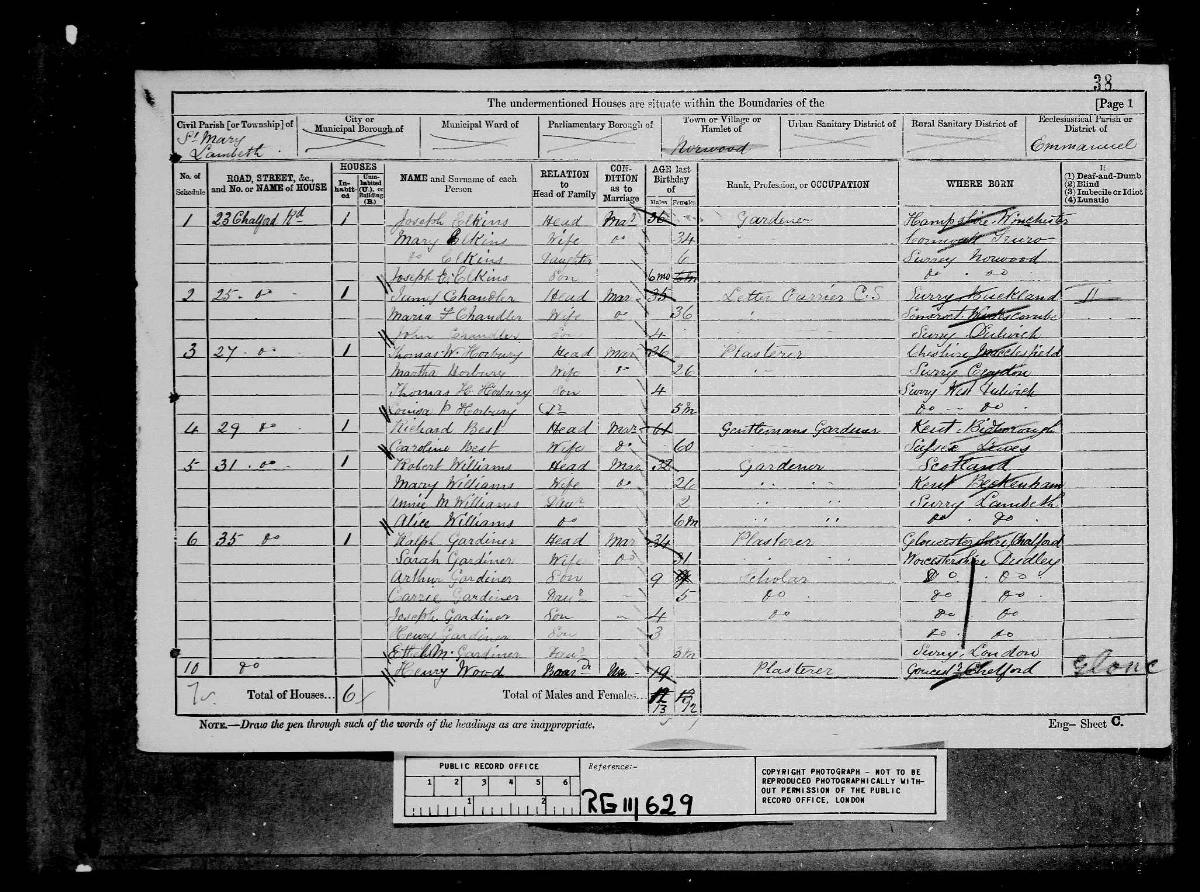 38
The undermentioned Houses are situate within the Boundaries of the [Page 1
Civil Parish [or Township] of City or Municipal Borough of Municipal Ward of Parliamentary Borough of Town or Village or Hamlet of Urban Sanitary District of Rural Sanitary District of Ecclesiastical Parish or District of
St Mary Lambeth Norwood Emmanuel
No. of Schedule ROAD, STREET, &c., and No. or NAME of HOUSE HOUSES In-habit-ed Unin-habited (U.), or Building (B.) NAME and Surname of each Person RELATION to Head of Family CON-DITION as to Marriage AGE last Birthday of Males Females Rank, Profession, or OCCUPATION WHERE BORN If (1) Deaf-and-Dumb (2) Blind (3) Imbecile or Idiot (4) Lunatic
1 23 Chalford Rd 1 Joseph Elkins Head Mar 36 Gardener Hampshire Winchester
Mary Elkins Wife do 34 Cornwall Truro
do Elkins Daughter 6 Surrey Norwood
Joseph E. Elkins Son 6mo do do
2 25 do 1 Chandler Head Mar 35 Letter Carrier C.S Surry Buckland
Maria F Chandler Wife do 36 Somerset
John Chandler 4 Surry Dulwich
3 27 do 1 Thomas W. Horbury Head Mar 26 Plasterer Cheshire Macclesfield
Martha Horbury Wife 26 Surry Croydon
Thomas H. Horbury Son 4 Surry West Dulwich
Louisa P Horbury 5m do do
4 29 do 1 Richard Best Head Mar 61 Gentlemans Gardener Kent
Caroline Best Wife do 60 Sussex Lewes
5 31 do 1 Robert Williams Head Mar 32 Gardener Scotland
Mary Williams Wife do 26 Kent Beckenham
Annie M Williams Daur 2 Surry Lambeth
Alice Williams do 6m do do
6 35 do 1 Ralph Gardiner Head Mar 34 Plasterer Gloucestershire Chalford
Sarah Gardiner Wife do 31 Worcestershire Dudley
Arthur Gardiner Son 9 Scholar do do
Carrie Gardiner Daur 5 do do do
Joseph Gardiner Son 4 do do do
Henry Gardiner Son 3 do do
Ethel M. Gardiner Daur 5m Surry, London
10 do Henry Wood Boardr 19 Plasterer Chelford Glouc
Total of Houses... 6 Total of Males and Females... 13 12
NOTE.—Draw the pen through such of the words of the headings as are inappropriate. Eng– Sheet C.
PUBLIC RECORD OFFICE
1 2 3 4 5 6
1 2
Reference:-
RG 11/629
COPYRIGHT PHOTOGRAPH – NOT TO BE
REPRODUCED PHOTOGRAPHICALLY WITH-
OUT PERMISSION OF THE PUBLIC
RECORD OFFICE, LONDON